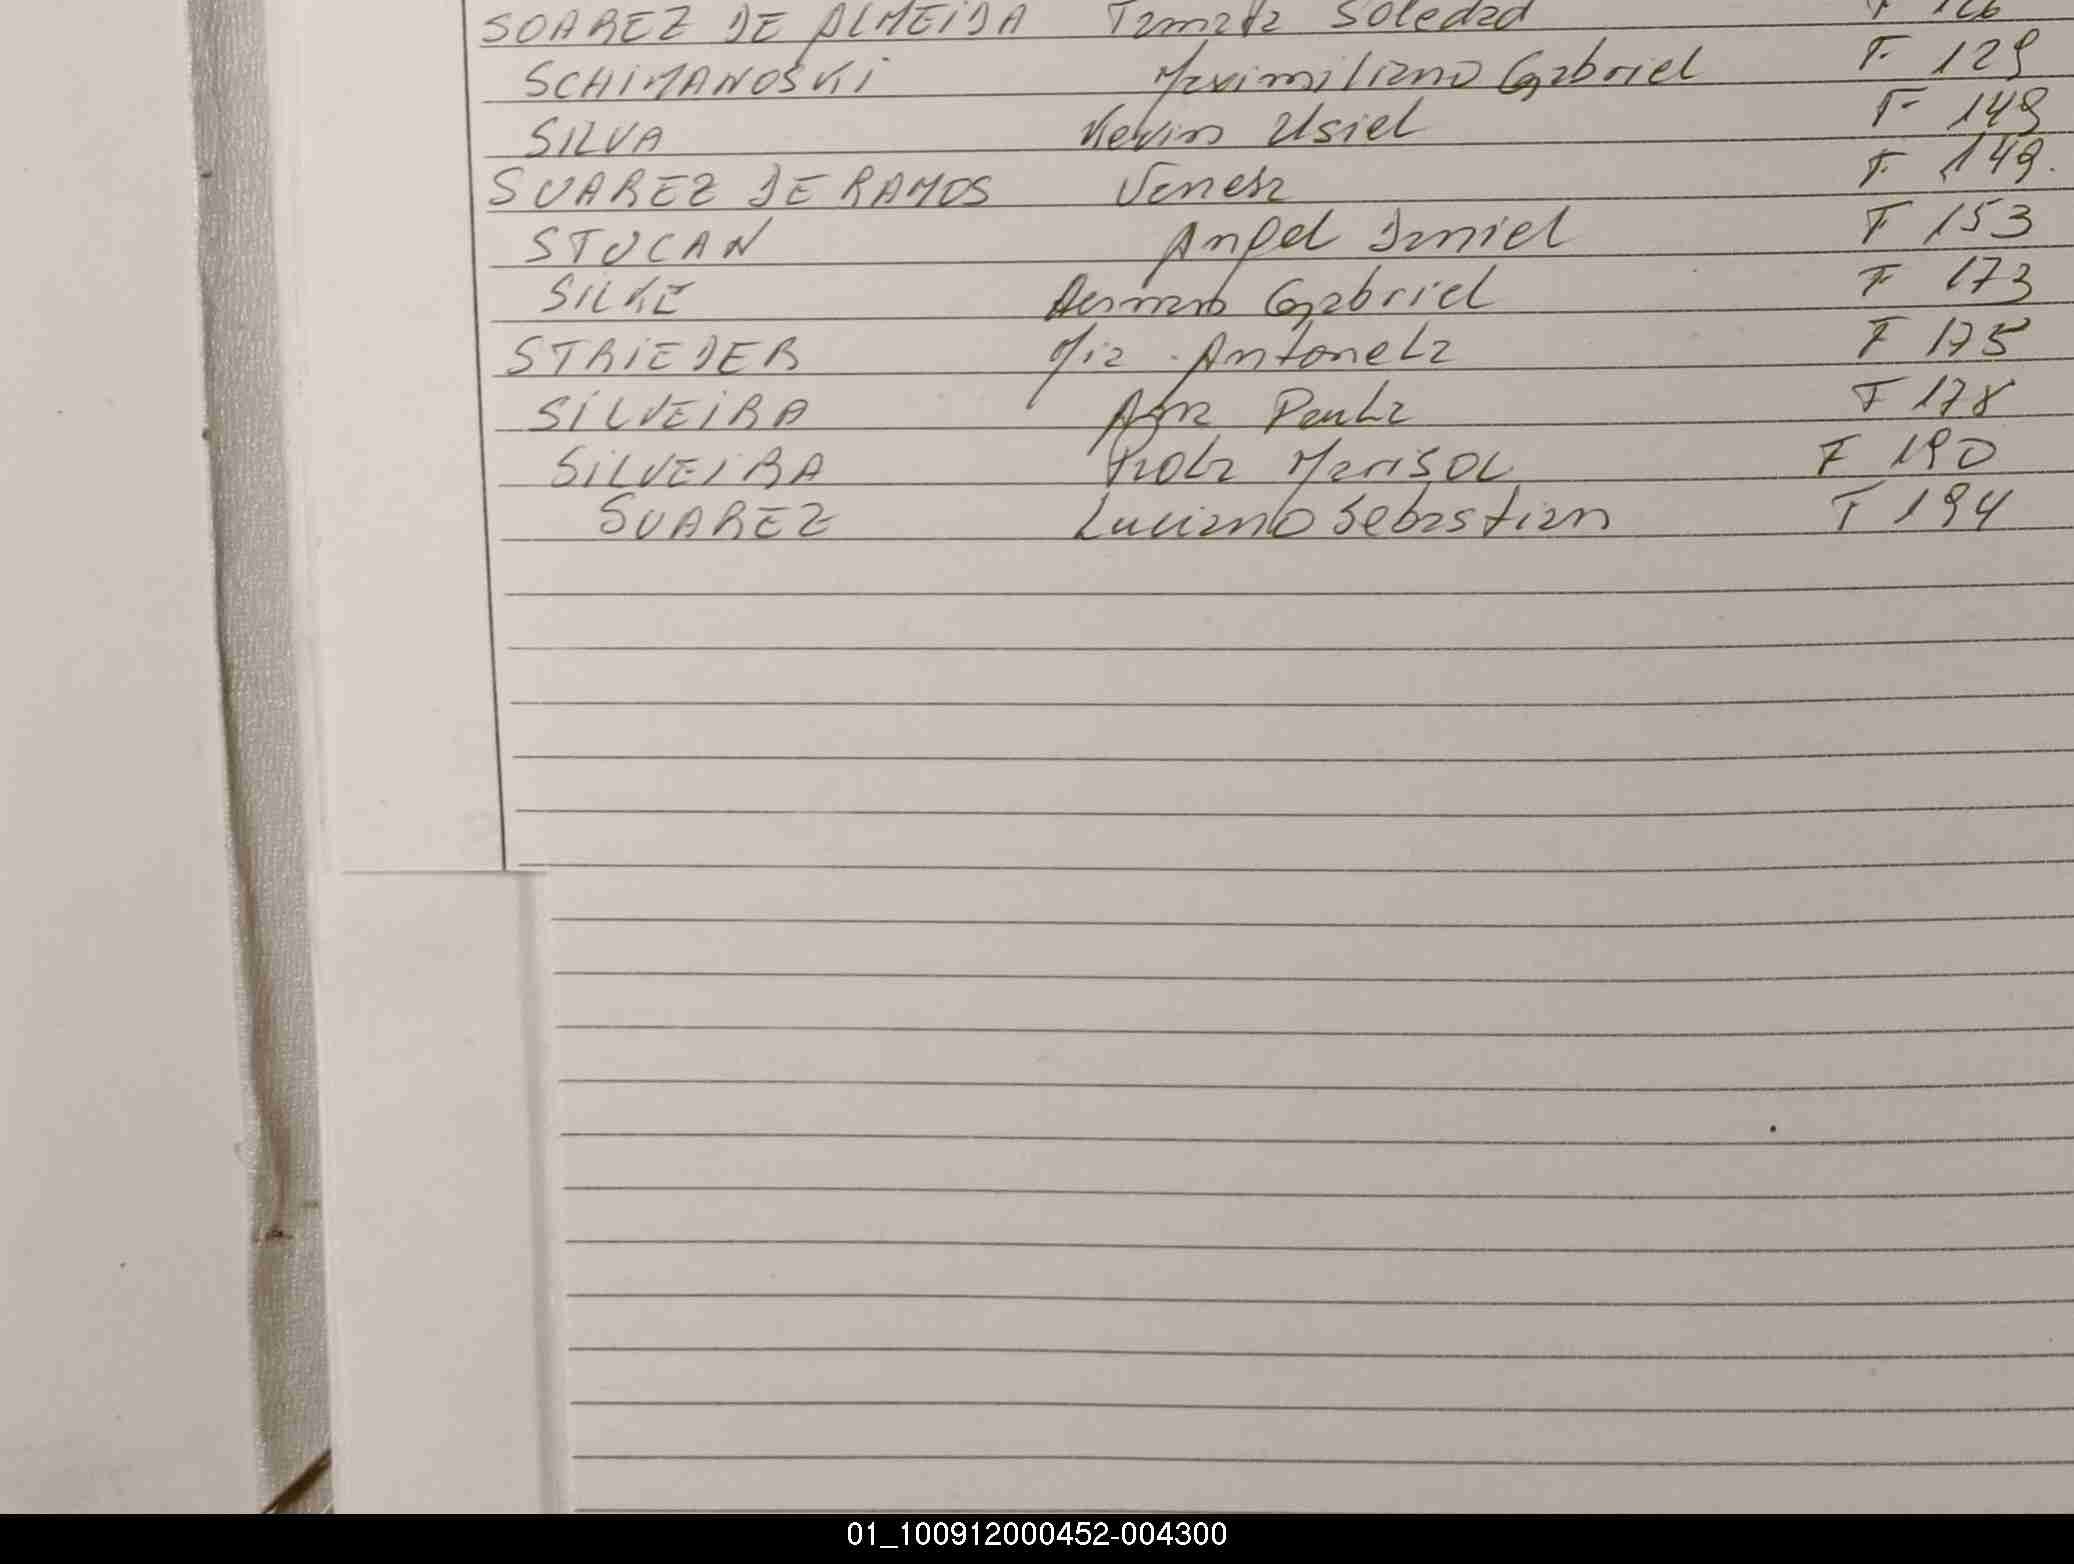 SOAREZ DE ALMEIDA Tamata Soledad F 126
SCHIMANOSKI Maximiliano Gabriel F 129
SILVA Kevin Usiel F 149
SUAREZ DE RAMOS Vanesa F 149.
STUCAN Angel Daniel F 153
SILKE Gabriel F 173
STRIEDER Mia Antonela F 175
SILVEIRA Ana Paula F 178
SILVEIRA Marisol F 190
SUAREZ Luciano Sebastian F 194
01_100912000452-004300